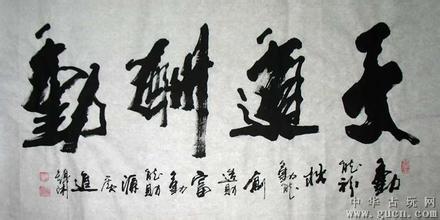 天道酬勤
勤能补拙勤能创造财富勤能财源广进
中华古玩网
www.gucn.com